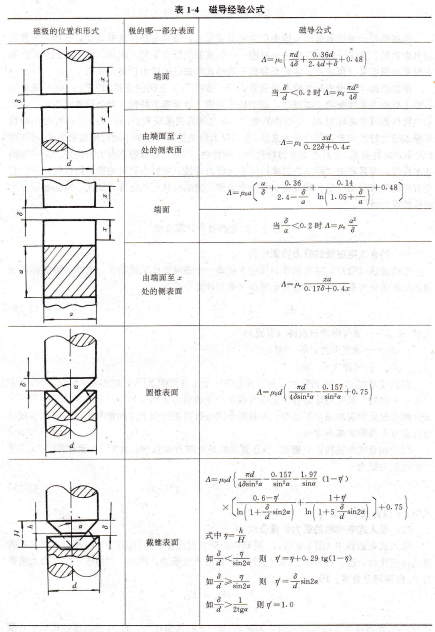 表 1-4 磁导经验公式
磁极的位置和形式
极的哪一部分表面
磁导公式
端面
Λ=μ₀(πd/4δ + 0.36d/(2.4d+δ) + 0.48)
当 δ/d <0.2 时 Λ=μ₀ πd²/4δ
由端面至 x
处的侧表面
Λ=μ₀ xd/(0.22δ+0.4x)
δ
x
x
d
端面
Λ=μ₀a(a/δ + 0.36/(2.4-δ/a) + 0.14/ln(1.05+δ/a) +0.48)
当 δ/a <0.2 时 Λ=μ₀ a²/δ
由端面至 x
处的侧表面
Λ=μ₀ xa/(0.17δ+0.4x)
δ
x
x
a
a
圆锥表面
Λ=μ₀d(πd/4δsin²α - 0.157/sin²α +0.75)
δ
α
d
截锥表面
Λ=μ₀d{πd/4δsin²α - 0.157/sin²α - 1.97/sinα (1-η′)
×[0.6-η′/ln(1+δ/d sin2α) + 1+η′/ln(1+5 δ/d sin2α)]+0.75}
式中 η= h/H
如 δ/d < η/sin2α 则 η′=η+0.29 tg(1-η)
如 δ/d ⩾ η/sin2α 则 η′= δ/d sin2α
如 δ/d > 1/2tgα 则 η′=1.0
H
h
α
δ
d